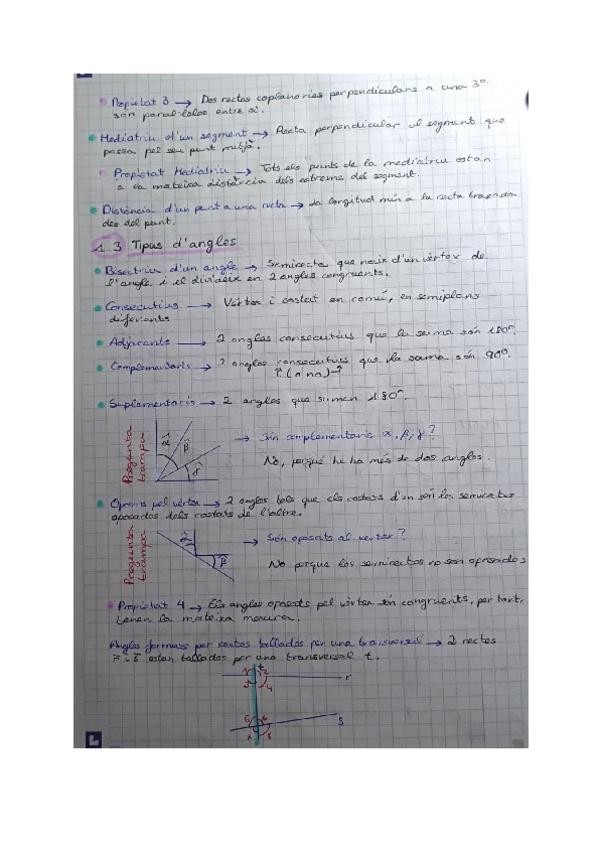 Propietat 3 → Dos rectes coplanaries perpendiculars a una 3º
són paral·leles entre sí.
Mediatriu d'un segment → Recta perpendicular al segment que
passa pel seu punt mitjà.
Propietat Mediatriu → Tots els punts de la mediatriu estan
a la mateixa distància dels extrems del segment.
Distància d'un punt a una recta → La longitud mín a la recta traçada
des del punt.
1.3 Tipus d'angles
Bisectriu d'un angle → Semirecta que neix d'un vèrtex de
l'angle i el divideix en 2 angles congruents.
Consecutius → Vèrtex i costat en comú, en semiplans
diferents
Adjacents → 2 angles consecutius que la suma són 180º
Complementaris → 2 angles consecutius que la suma són 90º.
(o no)
Suplementaris → 2 angles que sumen 180º.
Pregunta
trampa
α β γ
→ Són complementaris α, β, γ?
No, perquè hi ha més de dos angles.
Oposats pel vèrtex → 2 angles tals que els costats d'un són les semirectes
oposades dels costats de l'altre.
Pregunta
trampa
α β
→ Són oposats al vertex?
No perque les semirectes no son oposades
Propietat 4 → Els angles oposats pel vèrtex són congruents, per tant,
tenen la mateixa mesura.
Angles formats per rectes tallades per una transversal → 2 rectes
r i s estan tallades per una transversal t.
1 t 2
3 4 r
5 6 s
7 8